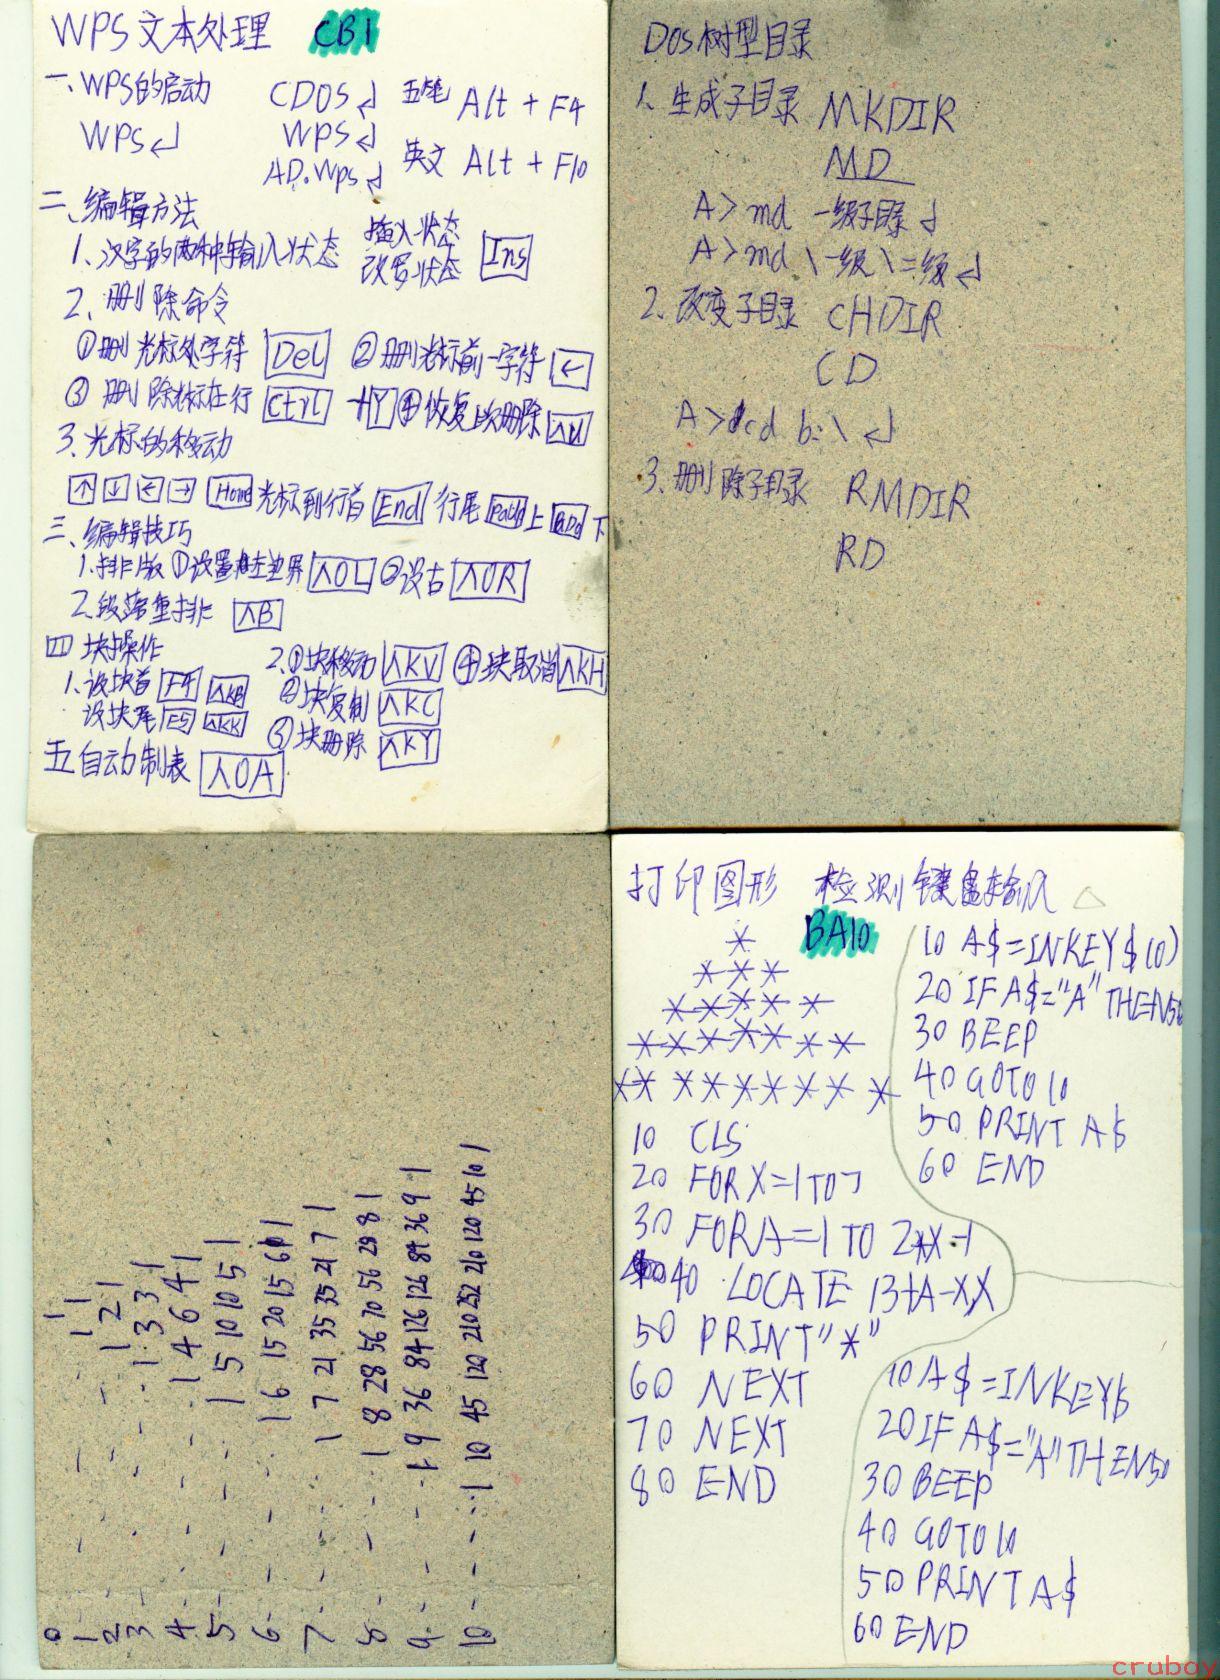 WPS文本处理 CB1
一、WPS的启动
WPS↲
CDOS↲
WPS↲
AD.Wps↲
五笔 Alt + F4
英文 Alt + F10
二、编辑方法
1、汉字的两种输入状态 插入状态 改写状态 Ins
2、删除命令
①删光标处字符 Del ②删光标前一字符 ←
③删除光标在行 Ctrl +Y ④恢复上次删除 ∧U
3、光标的移动
↑ ↓ ← → Home 光标到行首 End 行尾 PgUp 上 PgDn 下
三、编辑技巧
1、排版 ①设置左边界 ∧OL ②设右 ∧OR
2、段落重排 ∧B
四 块操作
1、设块首 F4 ∧KB
设块尾 F5 ∧KK
2、①块移动 ∧KV ④块取消 ∧KH
②块复制 ∧KC
③块删除 ∧KY
五 自动制表 ∧OA
DOS树型目录
1、生成子目录 MKDIR
MD
A>md 一级子目录↲
A>md \一级\二级↲
2、改变子目录 CHDIR
CD
A>cd b:\ ↲
3、删除子目录 RMDIR
RD
0 - - - 1
1 - - - 1 1
2 - - - 1 2 1
3 - - - 1 3 3 1
4 - - - 1 4 6 4 1
5 - - - 1 5 10 10 5 1
6 - - - 1 6 15 20 15 6 1
7 - - - 1 7 21 35 35 21 7 1
8 - - - 1 8 28 56 70 56 28 8 1
9 - - - 1 9 36 84 126 126 84 36 9 1
10 - - - 1 10 45 120 210 252 210 120 45 10 1
打印图形 检测键盘输入
BA10
*
* * *
* * * * *
* * * * * * *
* * * * * * * * *
10 CLS
20 FOR X=1 TO 7
30 FOR A=1 TO 2*X-1
40 LOCATE 13+A-X,X
50 PRINT"*"
60 NEXT
70 NEXT
80 END
10 A$=INKEY$(0)
20 IF A$="A" THEN50
30 BEEP
40 GOTO 10
50 PRINT A$
60 END
10 A$=INKEY$
20 IF A$="A" THEN50
30 BEEP
40 GOTO 10
50 PRINT A$
60 END
cruboy